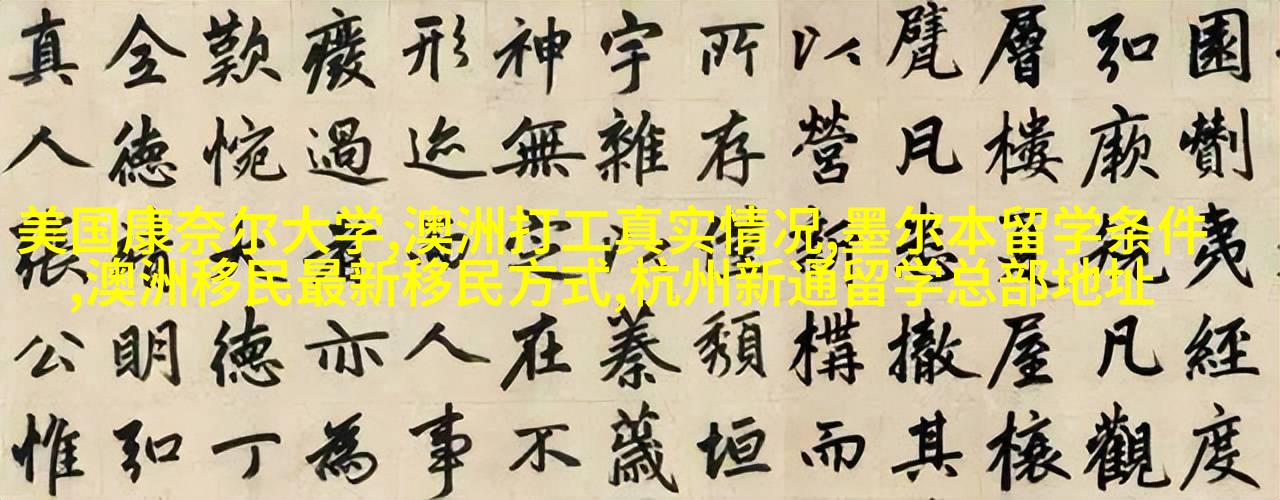 園劗夷經度
弘凡觀
層樓屋
凡撤其
以營構而
所存頹垣
宇雜蓁薉
神無在不
形迹人事
廢過亦為
歎惋德丁
全德明弘
真人張公惟
美国康奈尔大学,澳洲打工真实情况,墨尔本留学条件
,澳洲移民最新移民方式,杭州新通留学总部地址